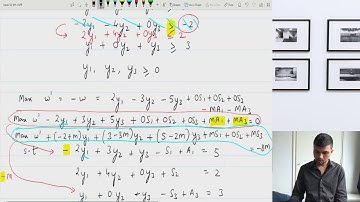 - 2y1 + 4y2 + 0y3 ≥ -2
2y1 + 4y2 + 0y3 ≤ 2
y1 + 0y2 + y3 ≥ 3
y1, y2, y3 ≥ 0
Max w' = -w = 2y1 - 3y2 - 5y3 + OS1 + OS2 + OS3
- MA1 - MA3
Max w' - 2y1 + 3y2 + 5y3 + OS1 + OS2 + OS3 + MA1 + MA3 = 0
Max w' + (-2+m)y1 + (3-3m)y2 + (5-2m)y3 + MS1 + OS2 + MS3
= -8M
s.t - 2y1 + 3y2 + y3 - S1 + A1 = 5
-M
2y1 + 4y2 + 0y3 + S2 = 2
y1 + 0y2 + y3 - S3 + A3 = 3